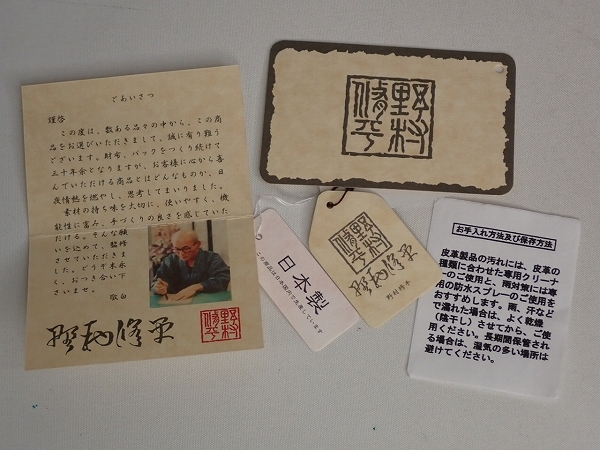 ごあいさつ
謹啓
この度は、数ある品々の中から、この商
品をお選びいただきまして、誠に有り難う
ございます。財布、バックをつくり続けて
三十年余となりますが、お客様に心から喜
んでいただける商品とはどんなものか、日
夜情熱を燃やし、思考してまいりました。
素材の持ち味を大切に、使いやすく、機
能性に富み、手づくりの良さを感じていた
だける。そんな願
いを込めて、監修
させていただきま
した。どうぞ末永
く、おつき合い下
さいませ。
敬白
野村修平
野村
修平
野村
修平
日本製
この商品は日本国内で生産しています
野村
修平
野村修平
野村修平
お手入れ方法及び保存方法
皮革製品の汚れには、皮革の
種類に合わせた専用クリーナ
ーのご使用と、雨対策には専
用の防水スプレーのご使用を
おすすめします。雨、汗など
で濡れた場合は、よく乾燥
（陰干し）させてから、ご使
用ください。長期間保管され
る場合は、湿気の多い場所は
避けてください。